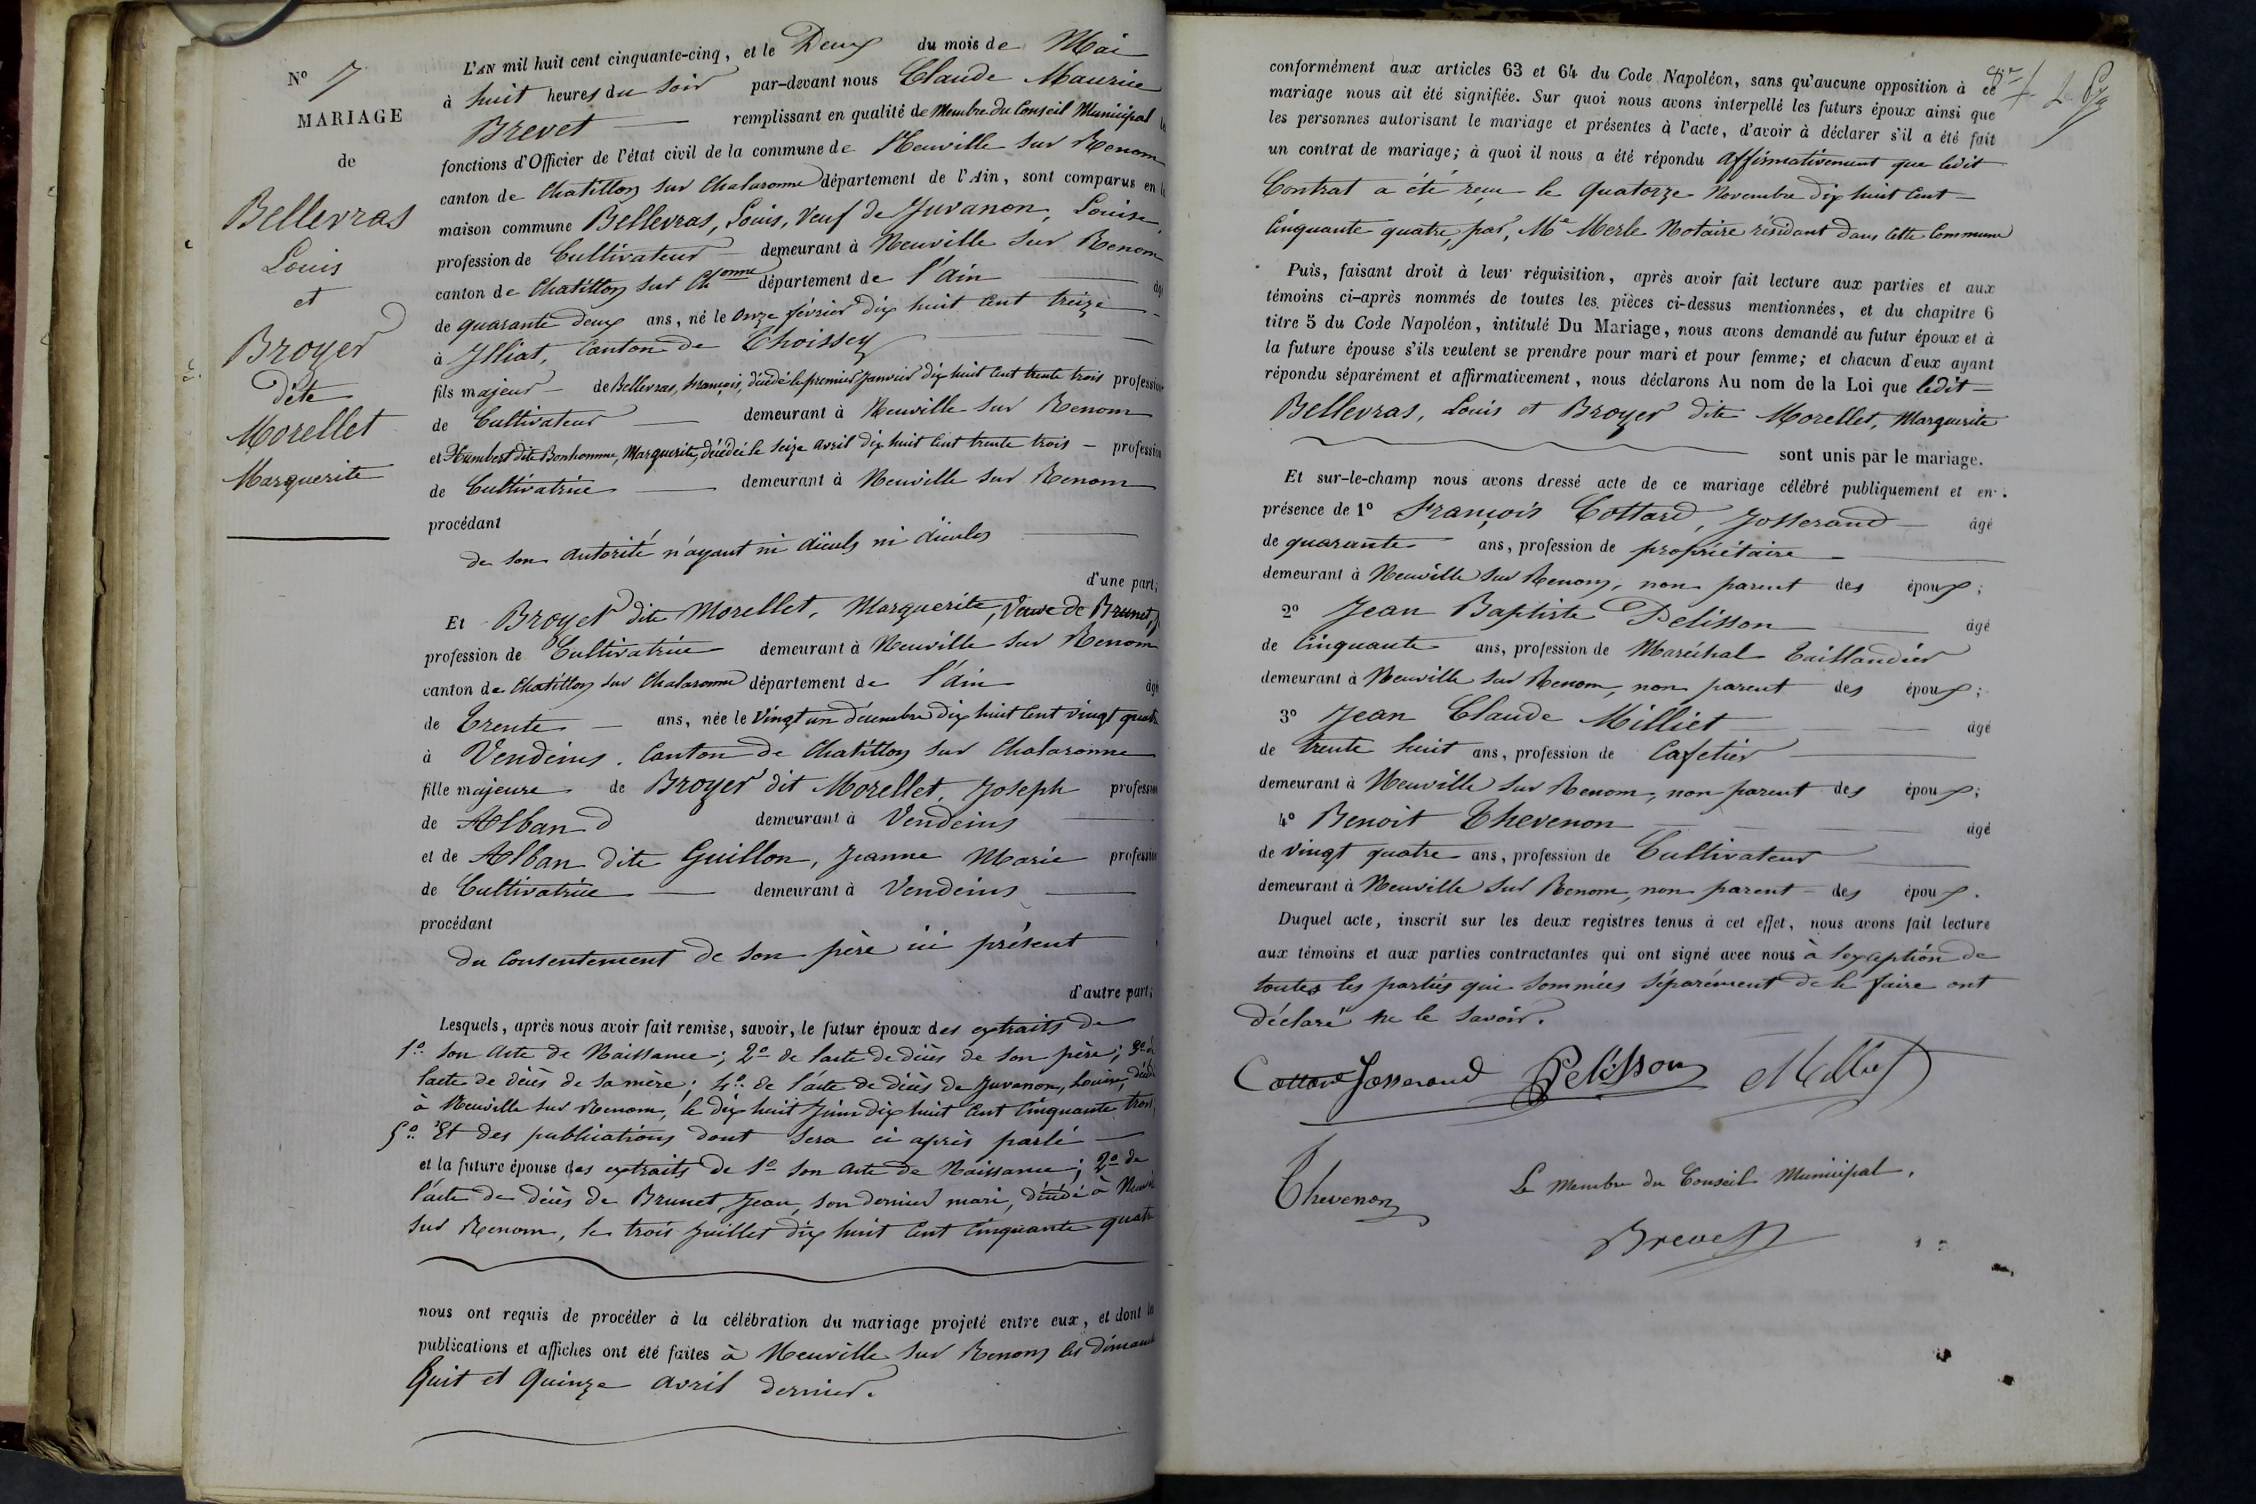 N° 7
MARIAGE
de
Bellevras
Louis
et
Broyer
dite
Morellet
Marguerite
L'AN mil huit cent cinquante-cinq, et le Deux du mois de Mai
à huit heures du soir par-devant nous Claude Maurice
Brevet remplissant en qualité de Membre du Conseil Municipal les
fonctions d'Officier de l'état civil de la commune de Neuville sur Renom
canton de Chatillon sur Chalaronne département de l'Ain, sont comparus en la
maison commune Bellevras, Louis, Veuf de Juvanon, Louise,
profession de Cultivateur demeurant à Neuville sur Renom
canton de Chatillon sur Chonne département de l'Ain âgé
de quarante deux ans, né le onze février dix huit cent treize
à Illiat, Canton de Thoissey
fils majeur de Bellevras, François, décédé le premier Janvier dix huit cent trente trois profession
de Cultivateur demeurant à Neuville sur Renom
et Humbert dite Bonhomme, Marguerite, décédée le seize avril dix huit cent trente trois – profession
de Cultivatrice demeurant à Neuville sur Renom
procédant
de son autorité n'ayant ni aïeuls ni aïeules
d'une part;
Et Broyer dite Morellet, Marguerite, Veuve de Brunet, J
profession de Cultivatrice demeurant à Neuville sur Renom
canton de Chatillon sur Chalaronne département de l'Ain âgé
de Trente ans, née le vingt un décembre dix huit cent vingt quatre
à Vendeins. Canton de Chatillon sur Chalaronne
fille majeure de Broyer dit Morellet, Joseph profession
de Alban demeurant à Vendeins
et de Alban dite Guillon, Jeanne Marie profession
de Cultivatrice demeurant à Vendeins
procédant
du consentement de son père ici présent
d'autre part;
Lesquels, après nous avoir fait remise, savoir, le futur époux des extraits de
1° son acte de Naissance; 2° de l'acte de décès de son père; 3° de
l'acte de décès de sa mère; 4° de l'acte de décès de Juvanon, Louise, décédée
à Neuville sur Renom, le dix huit Juin dix huit cent cinquante trois,
5° Et des publications dont sera ci après parlé
et la future épouse des extraits de 1° son acte de Naissance; 2° de
l'acte de décès de Brunet, Jean, son dernier mari, décédé à Neuville
sur Renom, le trois Juillet dix huit cent cinquante quatre
nous ont requis de procéder à la célébration du mariage projeté entre eux, et dont les
publications et affiches ont été faites à Neuville sur Renom les dimanches
huit et quinze avril dernier.
conformément aux articles 63 et 64 du Code Napoléon, sans qu'aucune opposition à ce
mariage nous ait été signifiée. Sur quoi nous avons interpellé les futurs époux ainsi que
les personnes autorisant le mariage et présentes à l'acte, d'avoir à déclarer s'il a été fait
un contrat de mariage; à quoi il nous a été répondu affirmativement que ledit
Contrat a été reçu le quatorze Novembre dix huit cent
Cinquante quatre, par, Me Merle Notaire résidant dans cette Commune
Puis, faisant droit à leur réquisition, après avoir fait lecture aux parties et aux
témoins ci-après nommés de toutes les pièces ci-dessus mentionnées, et du chapitre 6
titre 5 du Code Napoléon, intitulé Du Mariage, nous avons demandé au futur époux et à
la future épouse s'ils veulent se prendre pour mari et pour femme; et chacun d'eux ayant
répondu séparément et affirmativement, nous déclarons Au nom de la Loi que ledit
Bellevras, Louis et Broyer dite Morellet, Marguerite
sont unis par le mariage.
Et sur-le-champ nous avons dressé acte de ce mariage célébré publiquement et en
présence de 1° François Cottard, Josserand âgé
de quarante ans, profession de propriétaire
demeurant à Neuville sur Renom, non parent des époux;
2° Jean Baptiste Pelisson âgé
de Cinquante ans, profession de Maréchal Taillandier
demeurant à Neuville sur Renom, non parent des époux;
3° Jean Claude Milliet âgé
de trente huit ans, profession de Cafetier
demeurant à Neuville sur Renom, non parent des époux;
4° Benoit Thevenon âgé
de vingt quatre ans, profession de Cultivateur
demeurant à Neuville sur Renom, non parent des époux.
Duquel acte, inscrit sur les deux registres tenus à cet effet, nous avons fait lecture
aux témoins et aux parties contractantes qui ont signé avec nous à l'exception de
toutes les parties qui sommées séparément de le faire ont
déclaré ne le savoir.
Cottard Josserand Pelisson Milliet
Thevenon
Le Membre du Conseil Municipal,
Brevet